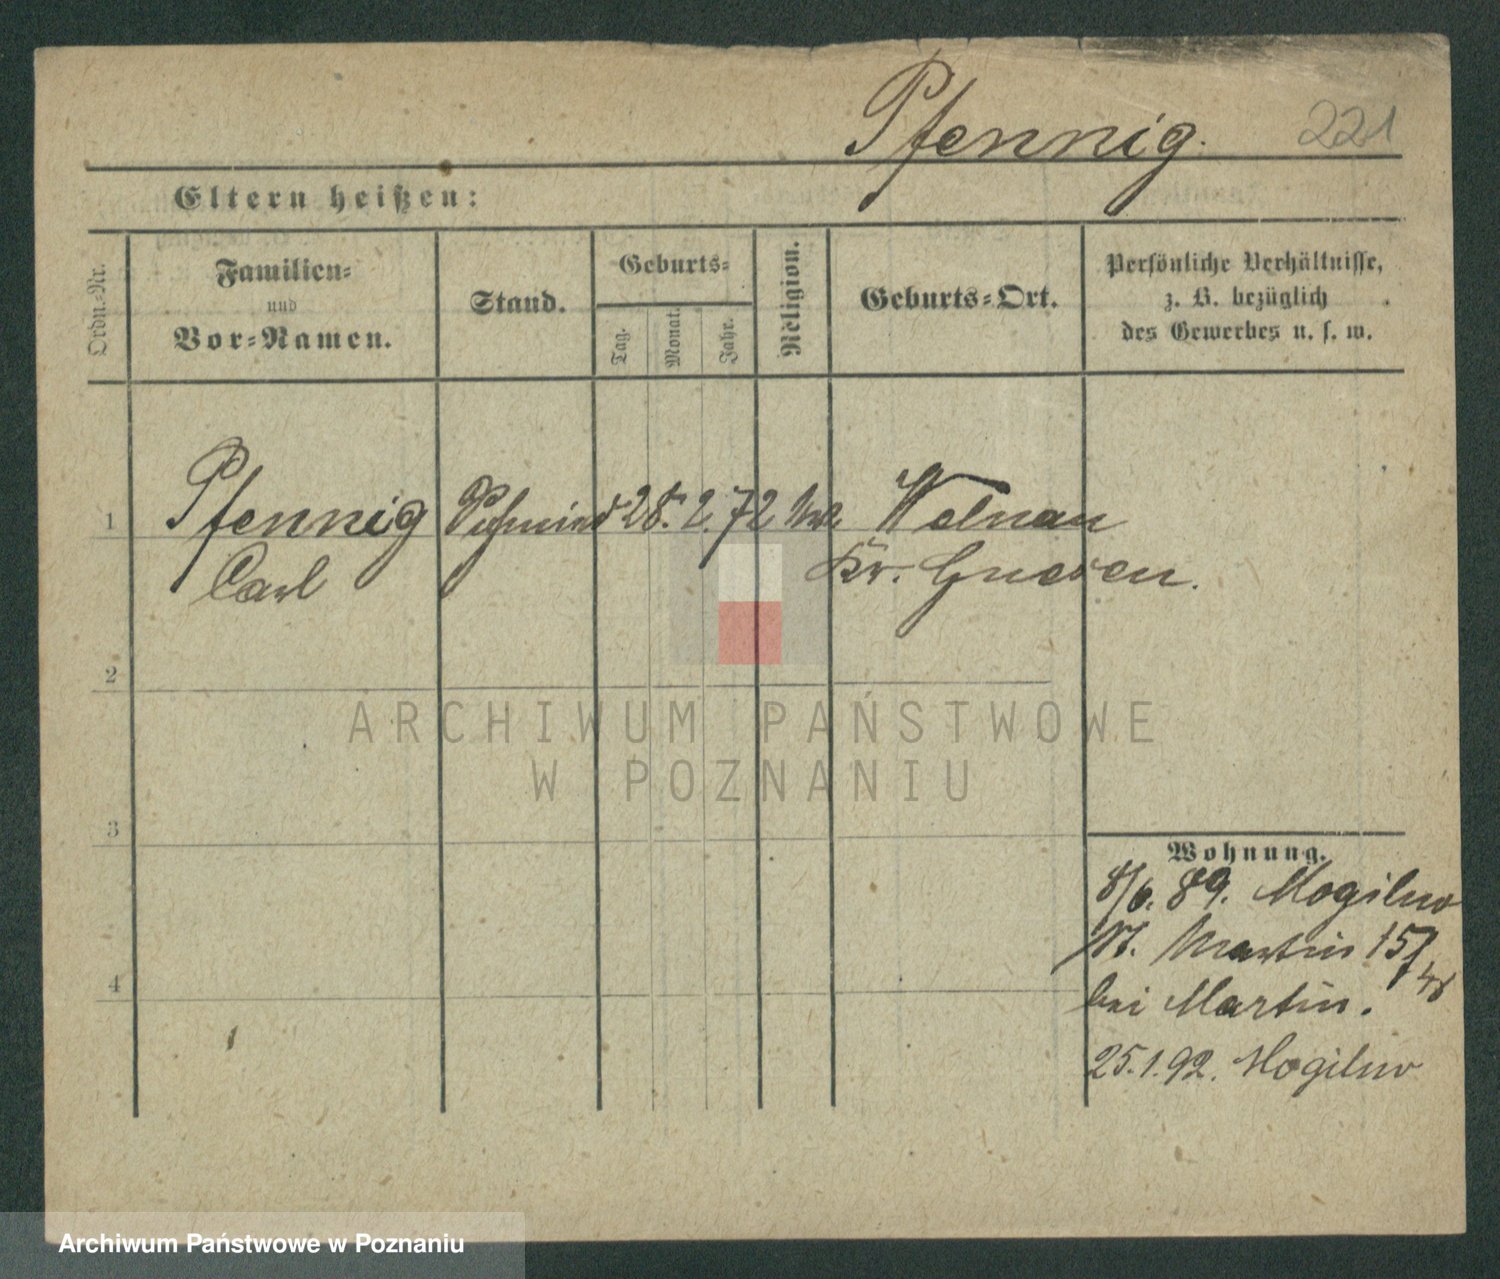 Pfennig. 221
Eltern heißen:
Ordn.-Nr.
Familien-
und
Vor-Namen.
Stand.
Geburts-
Tag.
Monat.
Jahr.
Religion.
Geburts-Ort.
Persönliche Verhältnisse,
z. B. bezüglich
des Gewerbes u. s. w.
1 Pfennig Schmied 28. 2. 72 Welnau
Carl Kr. Gnesen.
2
ARCHIWUM PAŃSTWOWE
W POZNANIU
3
Wohnung.
8/6. 89. Mogilno
St. Martin 157
bei Martin.
4
25.1.92. Mogilno
Archiwum Państwowe w Poznaniu